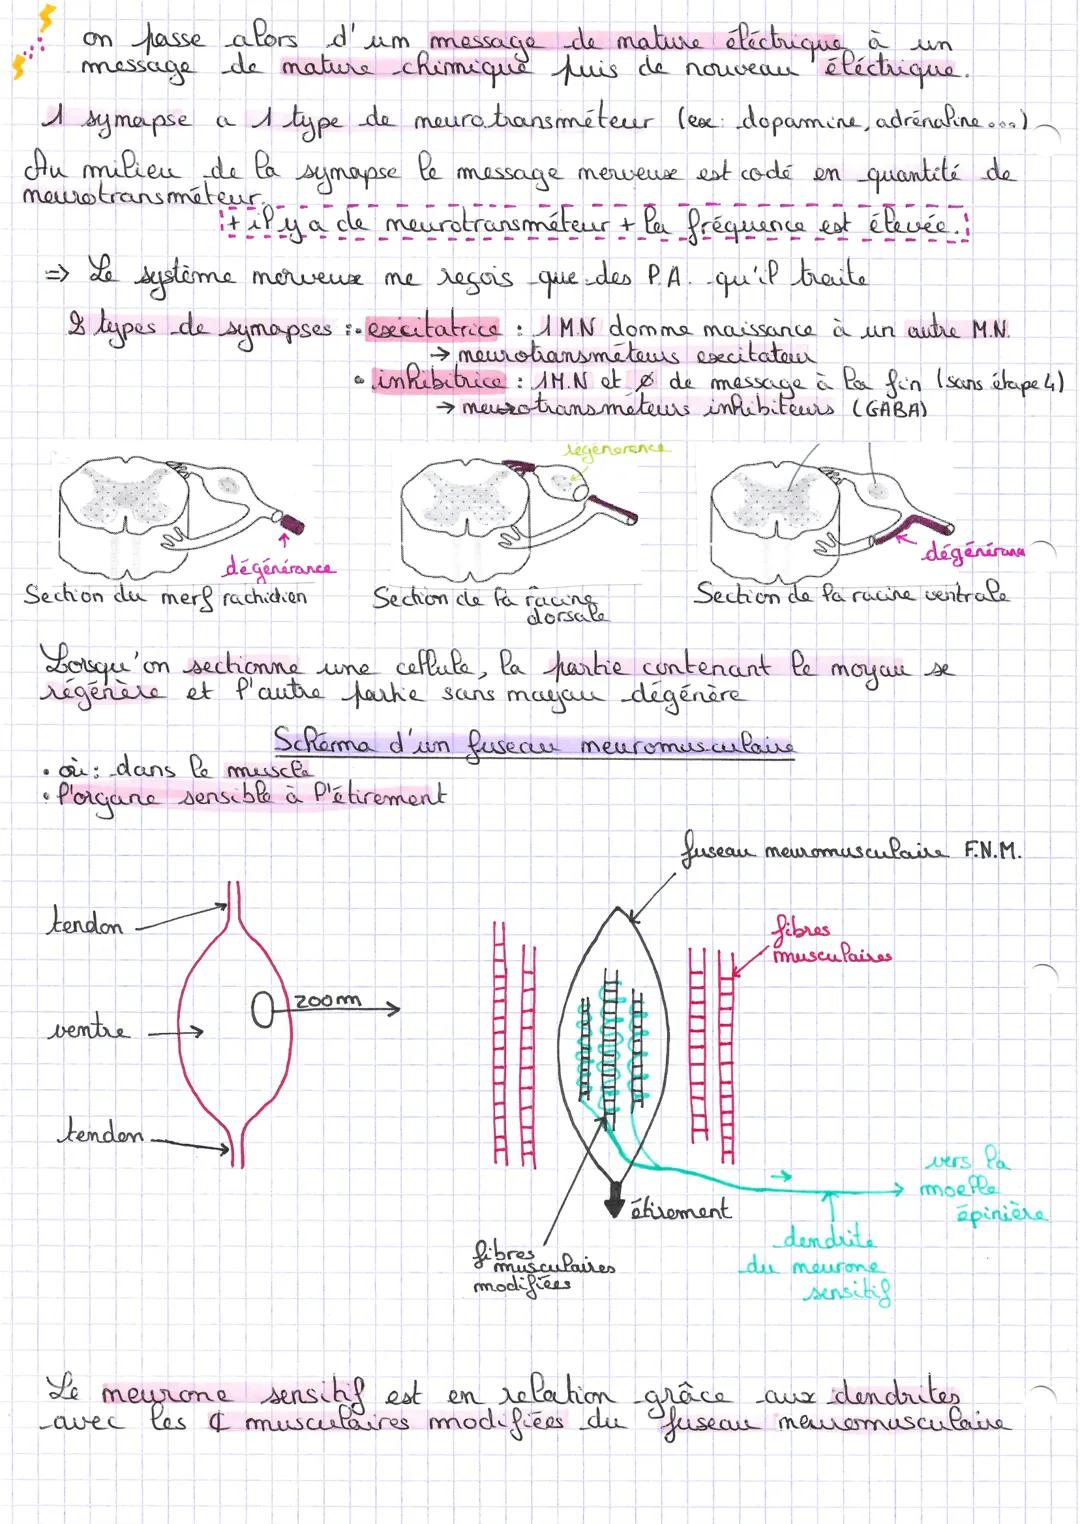 on passe alors d'un message de nature éléctrique à un
message de nature chimique puis de nouveau éléctrique.
1 synapse a 1 type de neurotransméteur (ex: dopamine, adrénaline...)
Au milieu de la synapse le message nerveux est codé en quantité de
neurotransméteur.
+ il y a de neurotransméteur + la fréquence est élevée.
=> Le système nerveux ne reçois que des P.A. qu'il traite
2 types de synapses : • excitatrice : 1 M.N donne naissance à un autre M.N.
→ neurotransméteurs excitateur
• inhibitrice : 1M.N et ∅ de message à la fin (sans étape 4)
→ neurotransméteurs inhibiteurs (GABA)
régénerence
dégénérance
dégénéran
Section du nerf rachidien
Section de la racine
dorsale
Section de la racine ventrale
Lorsqu'on sectionne une cellule, la partie contenant le noyau se
régénère et l'autre partie sans noyau dégénère
Schéma d'un fuseau neuromusculaire
• où : dans le muscle
• l'organe sensible à l'étirement
fuseau neuromusculaire F.N.M.
tendon
fibres
musculaires
zoom
ventre
tendon
vers la
moelle
épinière
étirement
dendrite
du neurone
sensitif
fibres
musculaires
modifiées
Le neurone sensitif est en relation grâce aux dendrites
avec les ¢ musculaires modifiées du fuseau neuromusculaire